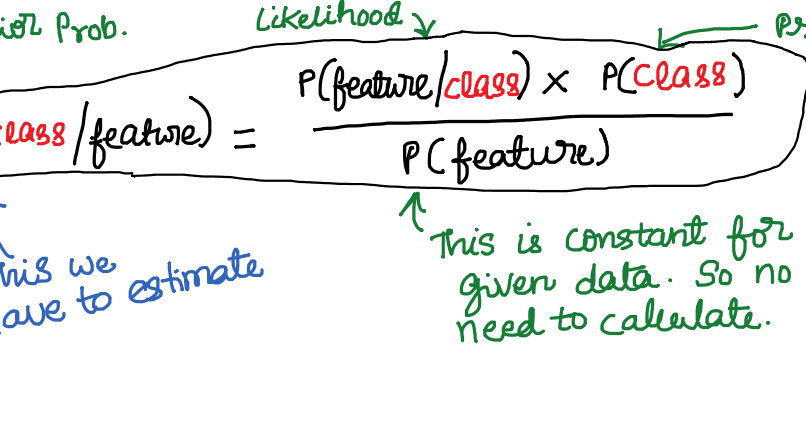 ior Prob.
Likelihood
Pr
P(feature/class) × P(class)
lass/feature) =
P(feature)
This is constant for
given data. So no
need to calculate.
his we
ave to estimate